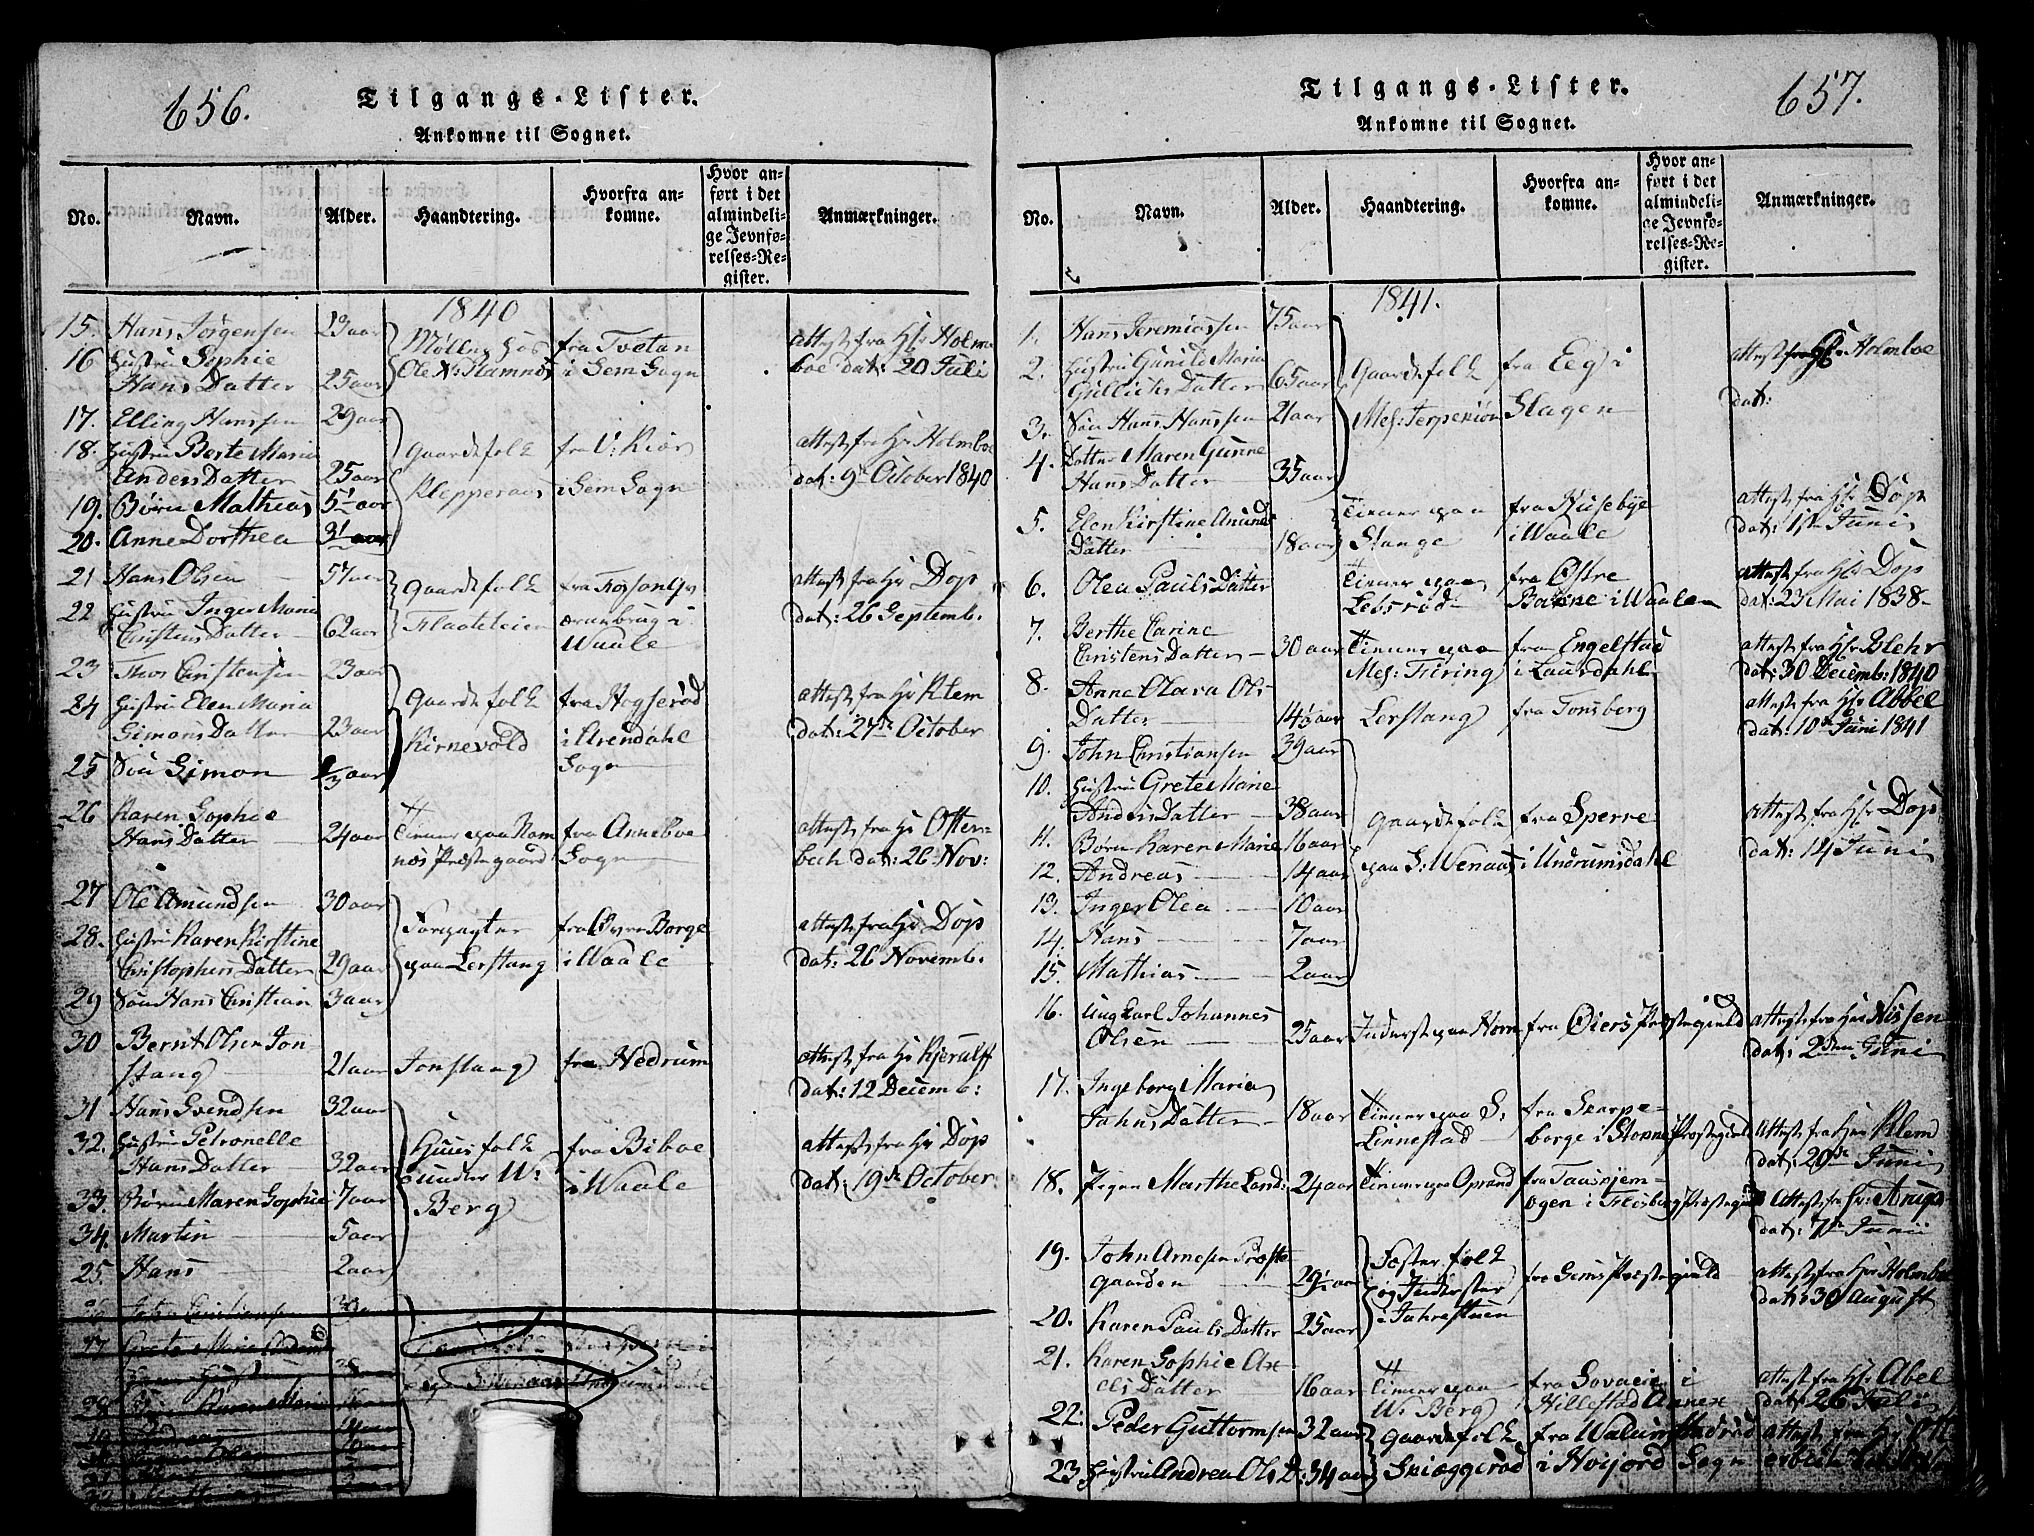 656.
Tilgangs-Lister.
Ankomne til Sognet.
No. Navn. Alder. Haandtering. Hvorfra ankomne. Hvor anført i det almindelige Jevnførelses-Register. Anmærkninger.
1840
15. Hans Jørgensen 23 aar Møllen hos fra Tvetan attest fra Hr Holm
16 Hustru Sophie Ole N: Ramnæs i Sem Sogn boe dat: 20 Juli
Hans Datter 25 aar
17. Elling Hanssen 29 aar
18. Hustru Berte Maria Gaardefolk fra V: Kiær attest fra Hr Holmboe
Anders Datter 25 aar Klepperaas i Sem Sogn dat: 9de October 1840
19. Børn Mathias 5½ aar
20. Anne Dorthea 3½ aar
21 Hans Olsen 57 aar Gaardefolk attest fra Hr Dop
22 Hustru Inger Maria dat: 26 Septemb.
Christens Datter 62 aar Flaateteien i Waale
23 Thor Christensen 23 aar
24 Hustru Elen Maria Gaardefolk fra Hogserød attest fra Hr Klem
Simons Datter 23 aar Kirnevold i Arendahl dat: 27de October
25 Søn Simon aar Sogn
26 Karen Sophie Tiener paa Ram fra Anneboe attest fra Hr Otter=
Hans Datter 24 aar næs Præstegaard Sogn bech dat: 26 Nov:
27 Ole Amundsen 30 aar Forpagter fra Øvre Borge attest fra Hr Dop
28. Hustru Karen Kirstine paa Lerstang i Waale dat: 26 Novemb.
Christophers Datter 29 aar
29 Søn Hans Christian 3 aar
30 Bernt Olsen Jon attest fra Hr Kjerulff
stang 21 aar Jonstang fra Hedrum dat: 12 Decemb:
31 Hans Svendsen 32 aar
32. Hustru Petronelle Huusfolk fra Biboe attest fra Hr Dop
Hans Datter 32 aar under W: i Waale dat: 19de October
33. Børn Maren Sophie 7 aar Berg
34. Martin 5 aar
25 Hans 2 aar
John Christiansen
Grete Marie
38
28 Karen Marie
657.
Tilgangs-Lister.
Ankomne til Sognet.
No. Navn. Alder. Haandtering. Hvorfra ankomne. Hvor anført i det almindelige Jevnførelses-Register. Anmærkninger.
1841.
1. Hans Jeremiassen 75 aar
2. Hustru Gunild Maria Gaardefolk fra Eeg i attest fra Hr Holmboe
Gullichs Datter 65 aar dat:
3. Søn Hans Hanssen 21 aar Mel: Jerpekiøn Slagen
4. Datter Maren Gunne
Hans Datter 35 aar
5. Elen Kirstine Anunds Tiener paa fra Husebye attest fra Hr Dop
Datter 18 aar Stange i Waale dat: 1ste Juni
6. Olea Pauls Datter Tiener paa fra Østre attest fra Hr Dop
Lebsrød i Waale dat: 23 Mai 1838
7. Berthe Carine
Christens Datter 30 aar Tiener paa fra Engelstad attest fra Hr Blehr
Mel: Firing i Laurdahl dat: 30 Decemb: 1840
8. Anne Olava Ols attest fra Hr Abbel
Datter 14½ aar Lerstang fra Tønsberg dat: 10de Juni 1841
9. John Christiansen 39 aar
10. Hustru Grete Marie
Anders Datter 38 aar Gaardefolk fra Sperre attest fra Hr Dop
11. Børn Karen Marie 16 aar paa S: Wenaas i Undrumsdahl dat: 14 Juni
12. Andreas 14 aar
13. Inger Olea 10 aar
14. Hans 7 aar
15. Mathias 2 aar
16. Ungkarl Johannes
Olsen 25 aar Inderst paa Horn fra Øiers Præstegield attest fra Hr Nissen
dat: 2den Juni
17. Ingeborg Maria
Jahns Datter 18 aar Tiener paa S: fra Skarpe=
Linnestad borge i Stokke Præstegield attest fra Hr Klem
dat: 20de Juni
18. Pigen Marthe Land: 24 aar Tiener paa Oprand fra i Præstegield Attest fra Hr:
dat: 7de Juni
19. John Arnesen Præste Fæsterfolk
gaarden 29½ aar og Inderster fra Sems Præstegield attest fra Hr Holmboe
dat: 30 August
20. Karen Pauls Datter 25 aar i Jahrestuen
21. Karen Sophie Ax
els Datter 16 aar Tiener paa fra i attest fra Hr Abel
W: Berg Hillestad Annex dat: 26 Juli
22. Peder Guttormsen 32 aar Gaardefolk fra attest fra Hr
23 Hustru Andrea Ols D: 34 aar Skieggerød i Hvijord Sogn